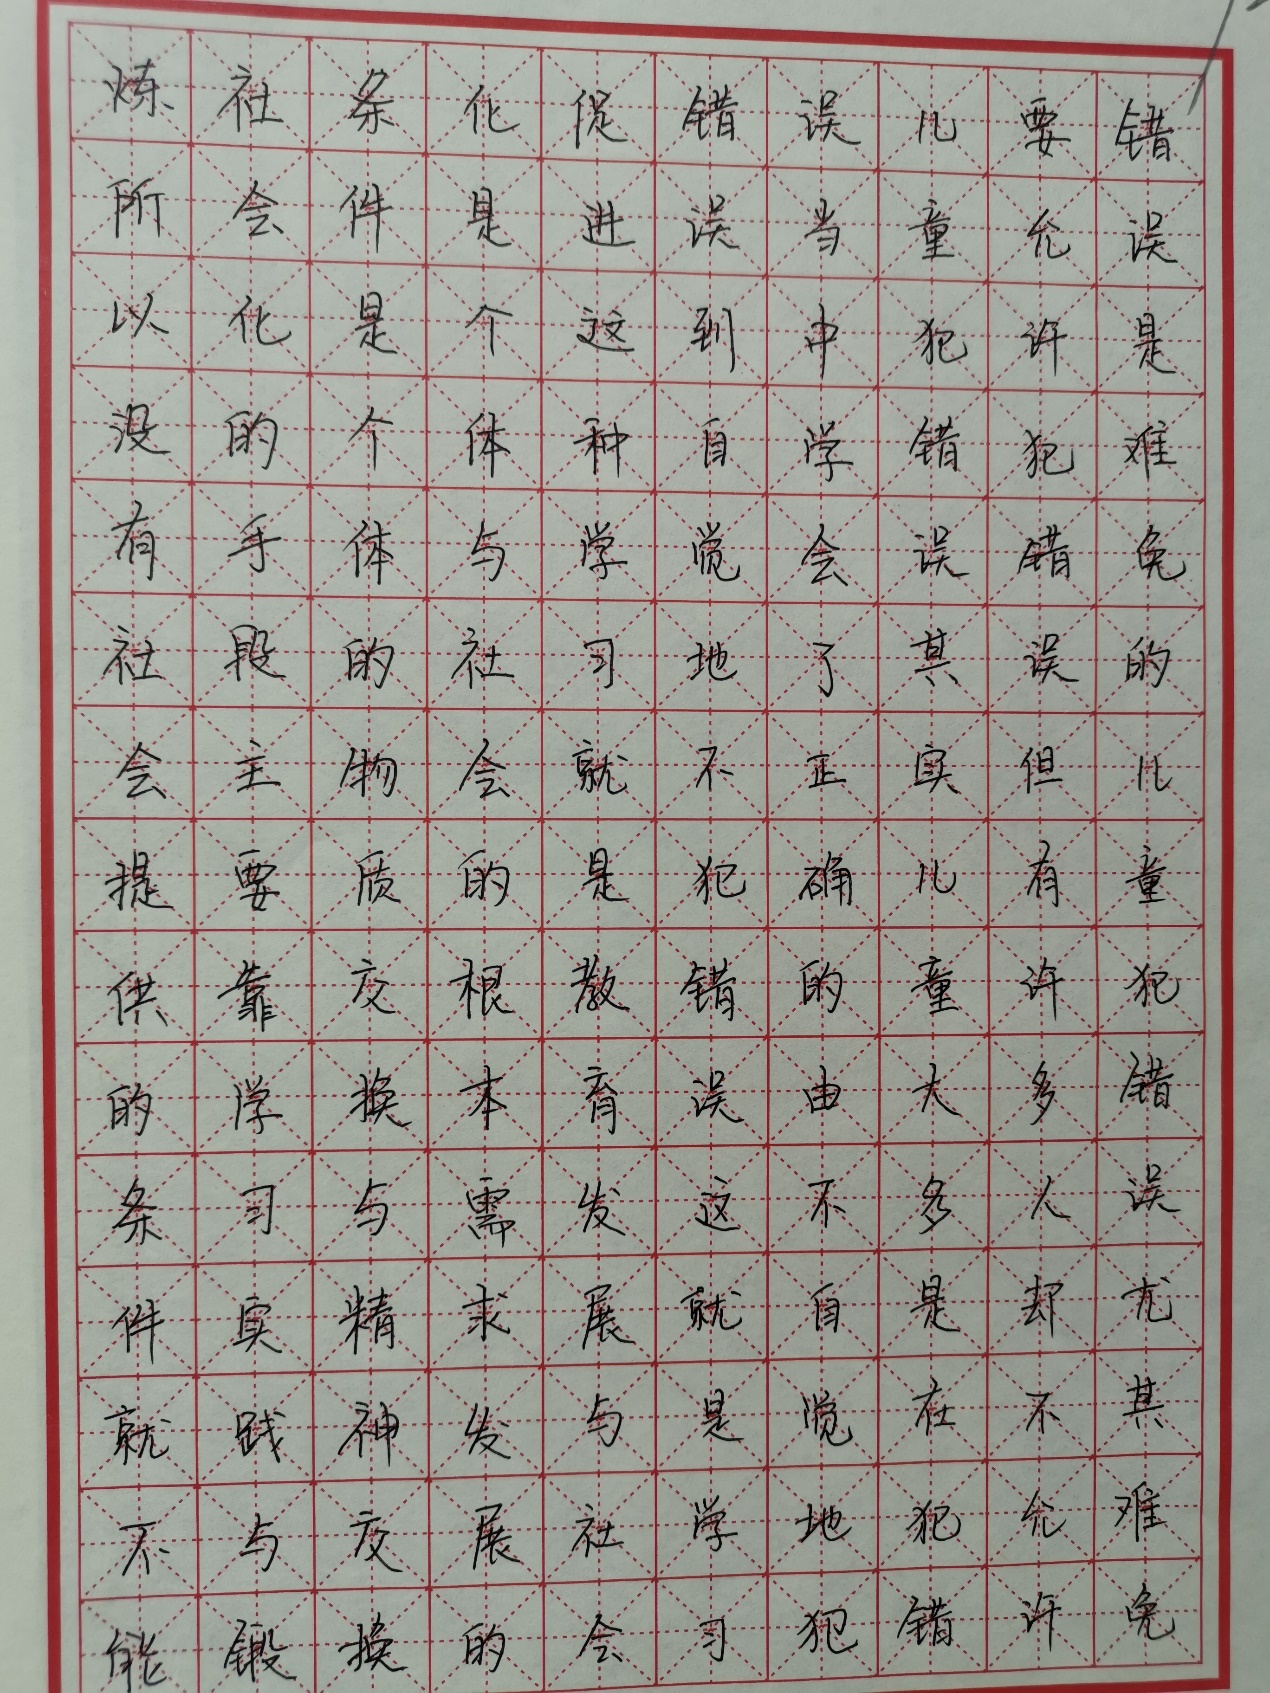 错误是难免的儿童犯错误尤其难免
要允许犯错误但有许多人却不允许
儿童犯错误其实儿童大多是在犯错
误当中学会了正确的由不自觉地犯
错误到自觉地不犯错误这就是学习
促进这种学习就是教育发展与社会
化是个体与社会的根本需求发展的
条件是个体的物质交换与精神交换
社会化的手段主要靠学习实践与锻
炼所以没有社会提供的条件就不能